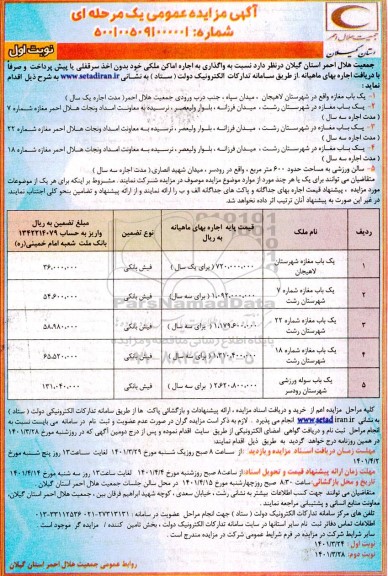 آگهی مزایده عمومی یک مرحله ای
شماره: ۵۰۰۱۰۰۵۰۹۱۰۰۰۰۰۱
نوبت اول
جمعیت هلال احمر
استان گیلان
جمعیت هلال احمر استان گیلان درنظر دارد نسبت به واگذاری به اجاره اماکن ملکی خود بدون اخذ سرقفلی یا پیش پرداخت و صرفاً
با دریافت اجاره بهای ماهیانه از طریق سامانه تدارکات الکترونیک دولت ( ستاد ) به نشانی www.setadiran.ir به شرح ذیل اقدام
نماید:
۱- یک باب مغازه واقع در شهرستان لاهیجان ، میدان سپاه ، جنب درب ورودی جمعیت هلال احمر( مدت اجاره یک سال )
۲- یک باب مغازه در شهرستان رشت ، میدان فرزانه ، بلوار ولیعصر ، نرسیده به معاونت امداد ونجات هلال احمر مغازه شماره ۷
( مدت اجاره سه سال )
۳- یک باب مغازه در شهرستان رشت ، میدان فرزانه ، بلوار ولیعصر ، نرسیده به معاونت امداد ونجات هلال احمر مغازه شماره ۲۲
( مدت اجاره سه سال )
۴- یک باب مغازه در شهرستان رشت ، میدان فرزانه ، بلوار ولیعصر ، نرسیده به معاونت امداد ونجات هلال احمر مغازه شماره ۱۸
( مدت اجاره سه سال )
۵- سالن ورزشی به مساحت حدود ۶۰۰ متر مربع ، واقع در رودسر ، میدان شهید انصاری( مدت اجاره سه سال )
متقاضیان می توانند برای یک یا هر چند مورد از موارد موضوع مزایده موصوف در مزایده شرکت نمایند . مشروط بر اینکه برای هر یک از موضوعات
مورد مزایده ، پیشنهاد قیمت اجاره بهای جداگانه و پاکت های جداگانه الف و ب را ارائه نمایند و از ارائه پیشنهاد و تضامین بنحو کلی اجتناب نمایند.
در غیر این صورت به پیشنهاد آنان ترتیب اثر داده نخواهد شد.
ردیف | نام ملک | قیمت پایه اجاره بهای ماهیانه به ریال | نوع تضمین | مبلغ تضمین به ریال واریز به حساب ۱۳۴۲۲۱۴۰۷۹ بانک ملت شعبه امام خمینی(ره)
۱ | یک باب مغازه شهرستان لاهیجان | ۷۲۰.۰۰۰.۰۰۰ ( برای یک سال ) | فیش بانکی | ۳۶.۰۰۰.۰۰۰
۲ | یک باب مغازه شماره ۷ شهرستان رشت | ۱.۰۹۲.۰۰۰.۰۰۰ ( برای سه سال ) | فیش بانکی | ۵۴.۶۰۰.۰۰۰
۳ | یک باب مغازه شماره ۲۲ شهرستان رشت | ۱.۱۷۹.۶۰۰.۰۰۰ ( برای سه سال ) | فیش بانکی | ۵۸.۹۸۰.۰۰۰
۴ | یک باب مغازه شماره ۱۸ شهرستان رشت | ( برای سه سال ) | فیش بانکی | ۶۵.۵۲۰.۰۰۰
۵ | یک باب سوله ورزشی شهرستان رودسر | ۲.۶۲۰.۸۰۰.۰۰۰ ( برای سه سال ) | فیش بانکی | ۱۳۱.۰۴۰.۰۰۰
کلیه مراحل مزایده اعم از خرید و دریافت اسناد مزایده ، ارائه پیشنهادات و بازگشائی پاکت ها از طریق سامانه تدارکات الکترونیکی دولت ( ستاد )
به نشانی www.setadiran.ir انجام می پذیرد . لازم به ذکر است مزایده گران در صورت عدم عضویت و ثبت نام در سامانه می بایست نسبت به
انجام مراحل ثبت نام و دریافت گواهی امضای الکترونیکی از طریق سایت اقدام نموده و پس از درج دومین آگهی که در روزشنبه مورخ ۱۴۰۱/۳/۲۸
در همین روزنامه درج خواهد گردید به طریق ذیل اقدام نمایند:
مهلت زمان دریافت اسناد مزایده و بازدید از ساعت ۸ صبح روزیک شنبه مورخ ۱۴۰۱/۳/۲۹ لغایت ساعت۱۳ روز پنج شنبه مورخ
۱۴۰۱/۴/۲
مهلت زمان ارائه پیشنهاد قیمت و تحویل اسناد:از ساعت ۸ صبح روزشنبه مورخ ۱۴۰۱/۴/۴ لغایت ساعت۱۳ روز سه شنبه مورخ ۱۴۰۱/۴/۱۴
تاریخ و محل بازگشائی ساعت ۸:۳۰ صبح روزچهارشنبه مورخ ۱۴۰۱/۴/۱۵ در محل سالن جلسات جمعیت هلال احمر استان گیلان
متقاضیان می توانند جهت کسب اطلاعات بیشتر به نشانی رشت ، خیابان سعدی ، کوچه شهید ابراهیم فرقان بین ، جمعیت هلال احمر استان گیلان،
معاونت منابع انسانی و پشتیبانی مراجعه نمایند.
تلفن های مرکز سامانه تدارکات الکترونیک دولت ( ستاد ) جهت انجام مراحل عضویت در سامانه : ۰۲۱-۲۷۳۱۳۱۳۱
اطلاعات تماس دفاتر ثبت نام سایر استانها در سایت سامانه تدارکات الکترونیک دولت ، بخش تامین کننده / مزایده گر موجود است.
سایر شرایط شرکت در مزایده در فرم شرایط عمومی شرکت در مزایده مندرج است .
نوبت اول: ۱۴۰۱/۳/۲۴
نوبت دوم: ۱۴۰۱/۳/۲۸
روابط عمومی جمعیت هلال احمر استان گیلان